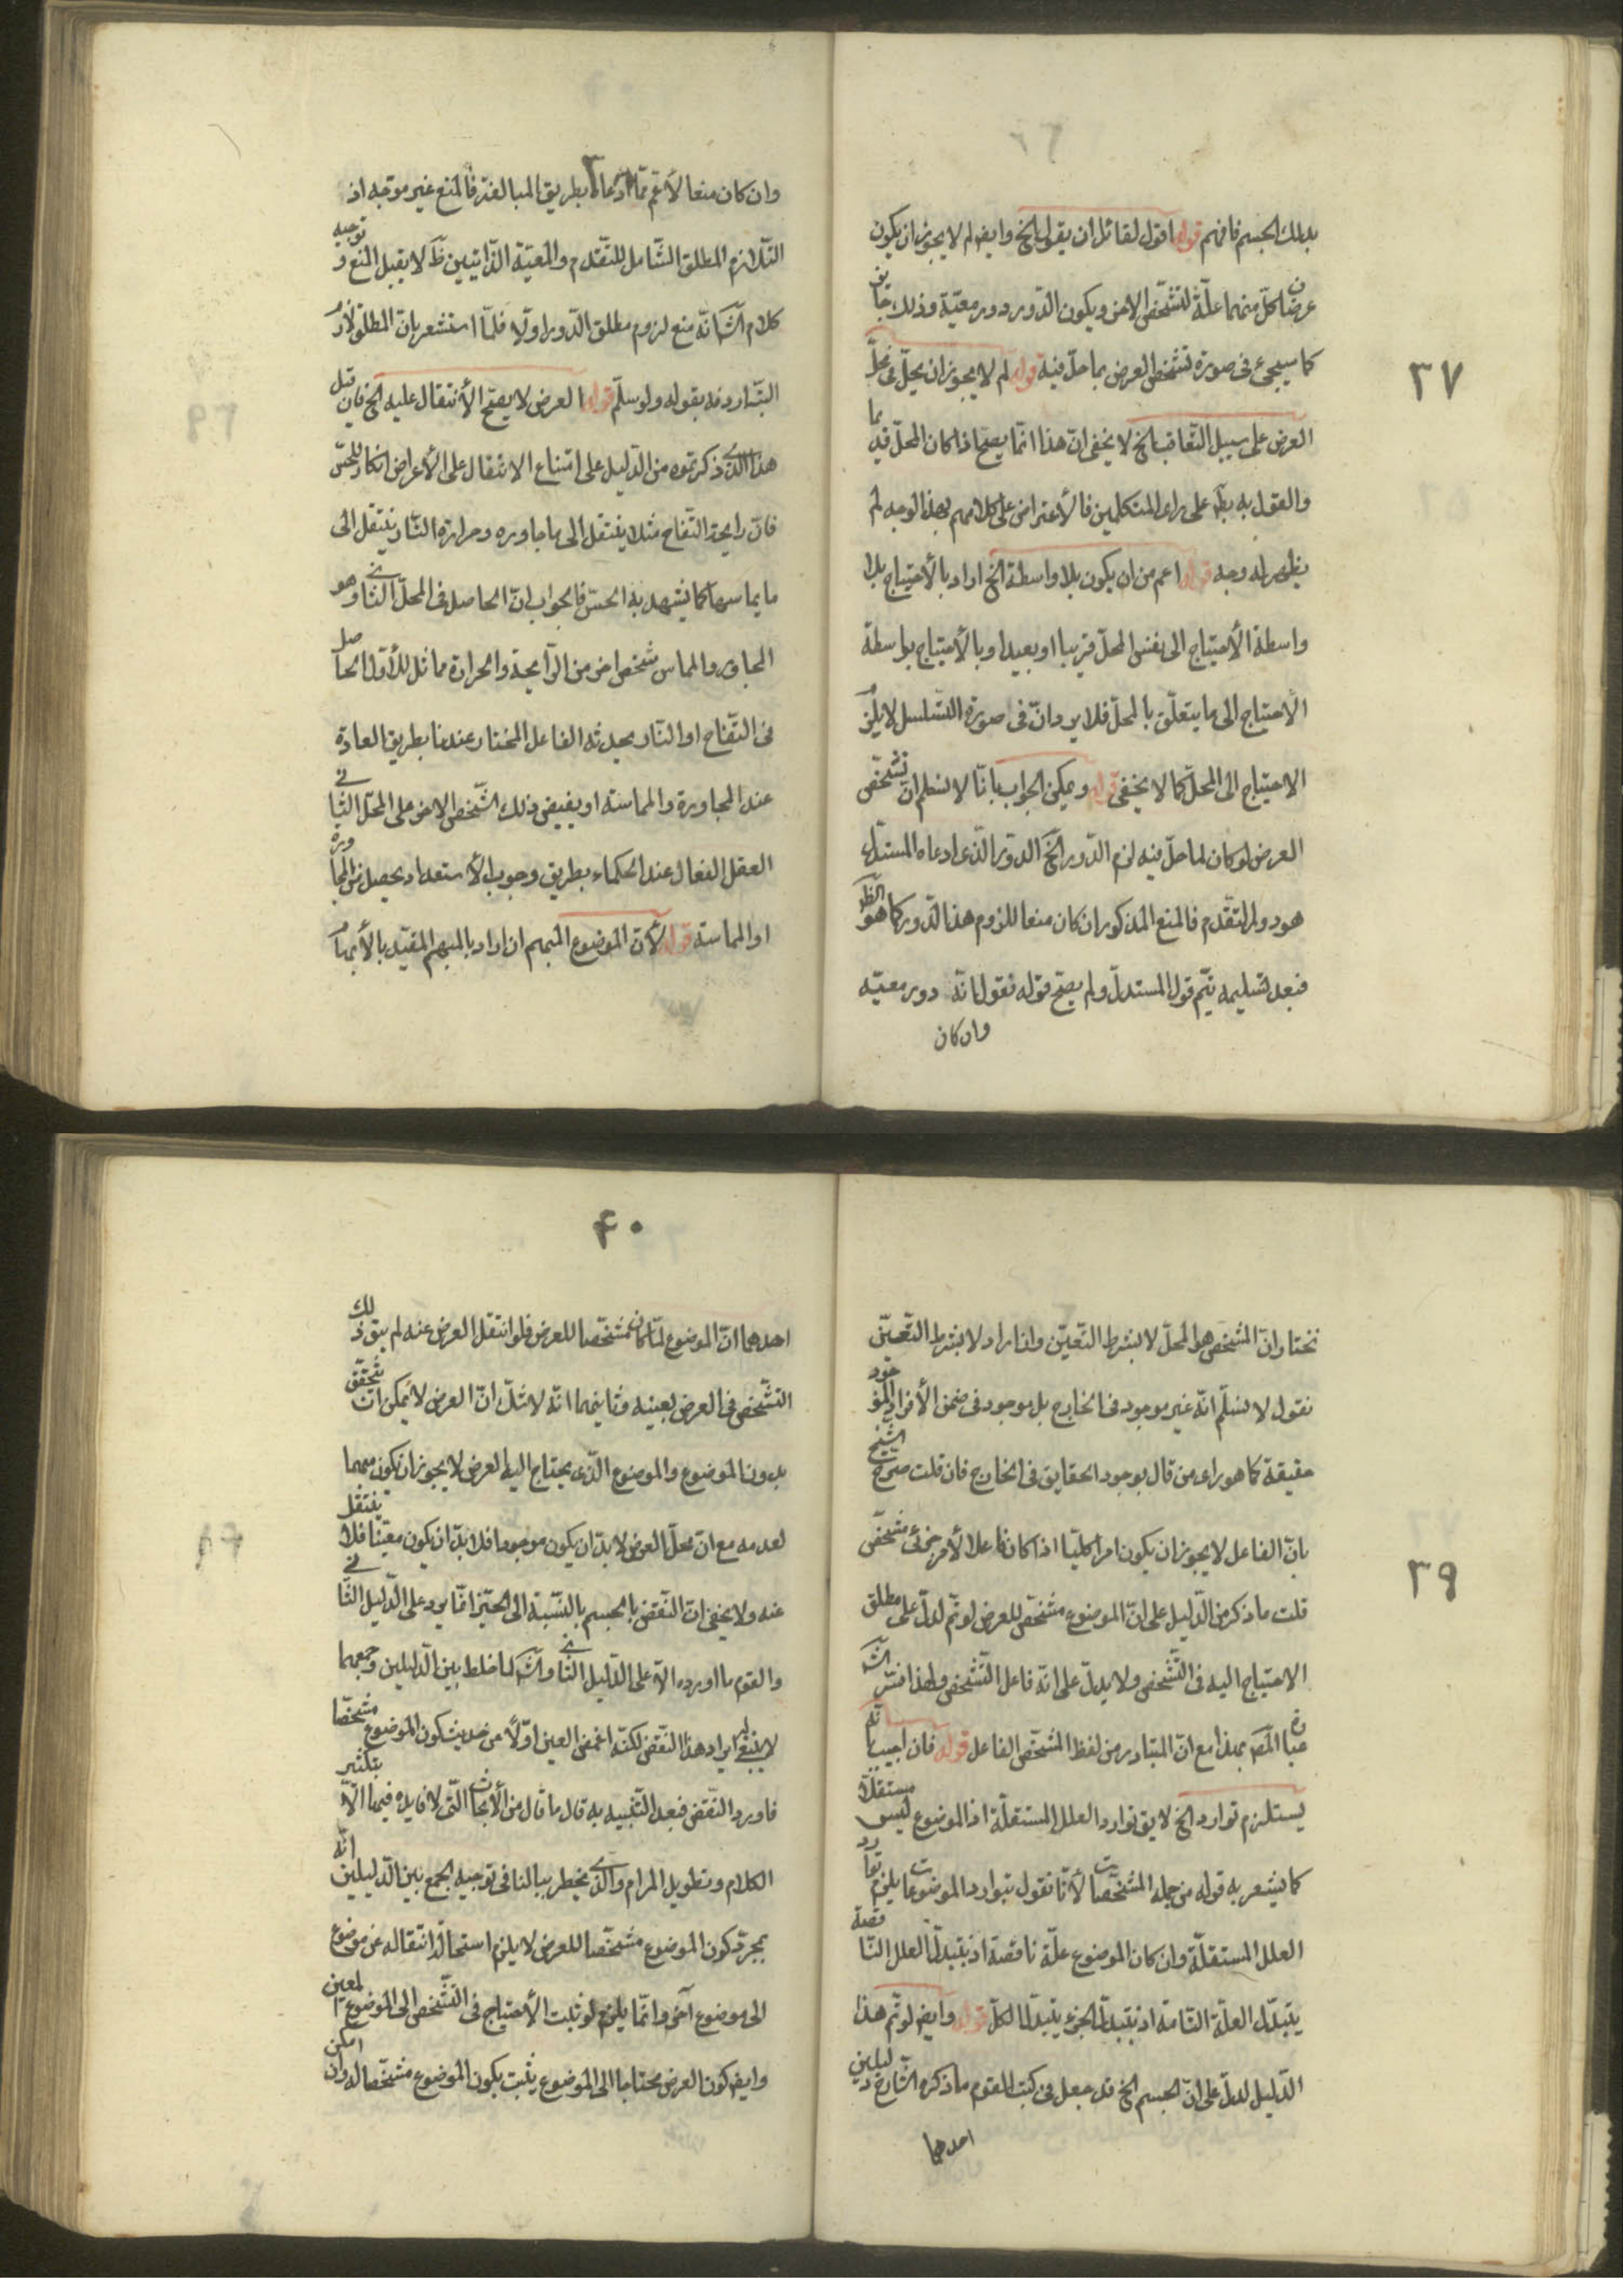 ٣٧
بذلك الجسم فافهم قوله اقول لقائل ان يقول الخ وايضا لم لا يجوز ان يكون
عرضا كل منهما علة لتشخص الاخر ويكون الدور دور معية وذلك جائز
كما سيجئ فى صورة تشخص العرض بما حل فيه قوله لم لا يجوز ان يحل فى محل
العرض على سبيل التعاقب الخ لا يخفى ان هذا انما يصح اذا كان المحل قديما
والقول به بط على راى المتكلمين فالأعتراض على كلامهم بهذا الوجه لم
يظهر له وجه قوله اعم من ان يكون بلا واسطة الخ اراد بالأحتياج بلا
واسطة الأحتياج الى نفس المحل قريبا او بعيدا وبالأحتياج بواسطة
الأحتياج الى ما يتعلق بالمحل فلا يرد ان فى صورة التسلسل لا يلزم
الاحتياج الى المحل كما لا يخفى قوله ويمكن الجواب بانا لا نسلم ان تشخص
العرض لو كان لما حل فيه لزم الدور الخ الدور الذى ادعاه المستدل
هو دور التقدم فالمنع المذكور ان كان منعا للزوم هذا الدور كما هو الظ
فبعد تسليمه يتم قول المستدل ولم يصح قوله فقول انه دور معية
وان كان
وان كان منعا لأعم مما ادعاه بطريق المبالغة فالمنع غير موجه اذ
التلازم المطلق الشامل للتقدم والمعية الذاتيين ظ لا يقبل المنع و توجيه
كلام الش انه منع لزوم مطلق الدور اولا فلما استشعر بان المطلق لازم
البتة اردفه بقوله ولو سلم قوله العرض لا يصح الأنتقال عليه الخ فان قيل
هذا الذى ذكرتموه من الدليل على امتناع الانتقال على الأعراض انكار للحس
فان رايحة التفاح مثلا ينتقل الى ما جاوره وحرارة النار ينتقل الى
ما يماسها كما يشهد به الحس فالجواب ان الحاصل فى المحل الثانى وهو
المجاور والمماس شخص اخر من الرايحة والحرارة مماثل للأول الحاصل
فى التفاح او النار يحدثه الفاعل المختار عندنا بطريق العادة
عند المجاورة والمماسة او يفيض ذلك الشخص الاخر على المحل الثانى
العقل الفعال عند الحكماء بطريق وجوب الأستعداد يحصل من المجاورة
او المماسة قوله لأن الموضوع المبهم ان اراد بالمبهم المقيد بالأبهام
٣٩
نختار ان المشخص هو المحل لا بشرط التعين وان اراد لا بشرط التعين
نقول لا نسلم انه غير موجود فى الخارج بل موجود فى ضمن الأفراد الموجود
حقيقة كما هو راى من قال بوجود الحقايق فى الخارج فان قلت صرح الشيخ
بان الفاعل لا يجوز ان يكون امرا كليا اذا كان فاعلا لأمر جزئى مشخص
قلت ما ذكر من الدليل على ان الموضوع مشخص للعرض لو تم لدل على مطلق
الاحتياج اليه فى التشخص ولا يدل على انه فاعل التشخص ولهذا فسر الش
عبارة المص بهذا مع ان المتبادر من لفظ المشخص الفاعل قوله فان اجيب بانه
يستلزم توارد الخ لا يق توارد العلل المستقلة اذ الموضوع ليس مستقلا
كما يشعر به قوله من جملة المشخصات لأنا نقول بتوارد الموضوعات يلزم توارد
العلل المستقلة وان كان الموضوع علة ناقصة اذ بتبدل العلل الناقصة
يتبدل العلة التامة اذ بتبدل الجزء يتبدل الكل قوله وايض لو تم هذا
الدليل لدل على ان الجسم الخ قد جعل فى كتب القوم ما ذكره الشارح دليلين
احدهما
٤٠
احدهما ان الموضوع لما كان مشخصا للعرض فلو انتقل العرض عنه لم يبق ذلك
التشخص فى العرض بعينه وثانيهما انه لا شك ان العرض لا يمكن ان تتحقق
بدون الموضوع والموضوع الذى يحتاج اليه العرض لا يجوز ان يكون مبهما
لعدمه مع ان محل العرض لا بد ان يكون موجودا فلا بد ان يكون معينا فلا ينتقل
عنه ولا يخفى ان النقض بالجسم بالنسبة الى الحيز انما يرد على الدليل الثانى
والقوم ما اوردوه الا على الدليل الثانى والش لما خلط بين الدليلين وجمعهما
لا ينبغى له ايراد هذا النقض لكنه اغمض العين اولا عن حديث كون الموضوع مشخصا
فاورد النقض فبعد التنبيه به قال ما قال من الأبحاث التى لا فايدة فيها الا بتكثير
الكلام وتطويل المرام والذى يخطر ببالنا فى توجيه الجمع بين الدليلين انه
بمجرد كون الموضوع مشخصا للعرض لا يلزم استحالة انتقاله عن موضوع
الى موضوع آخر وانما يلزم لو ثبت الأحتياج فى التشخص الى الموضوع المعين
وايض كون العرض محتاجا الى الموضوع يثبت بكون الموضوع مشخصا له وان امكن